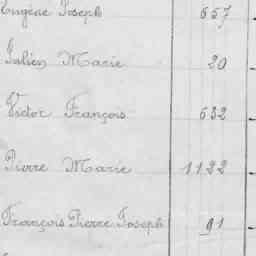 Eugène Joseph 657
Julien Marie 20
Victor François 632
Pierre Marie 1122
François Pierre Joseph 91